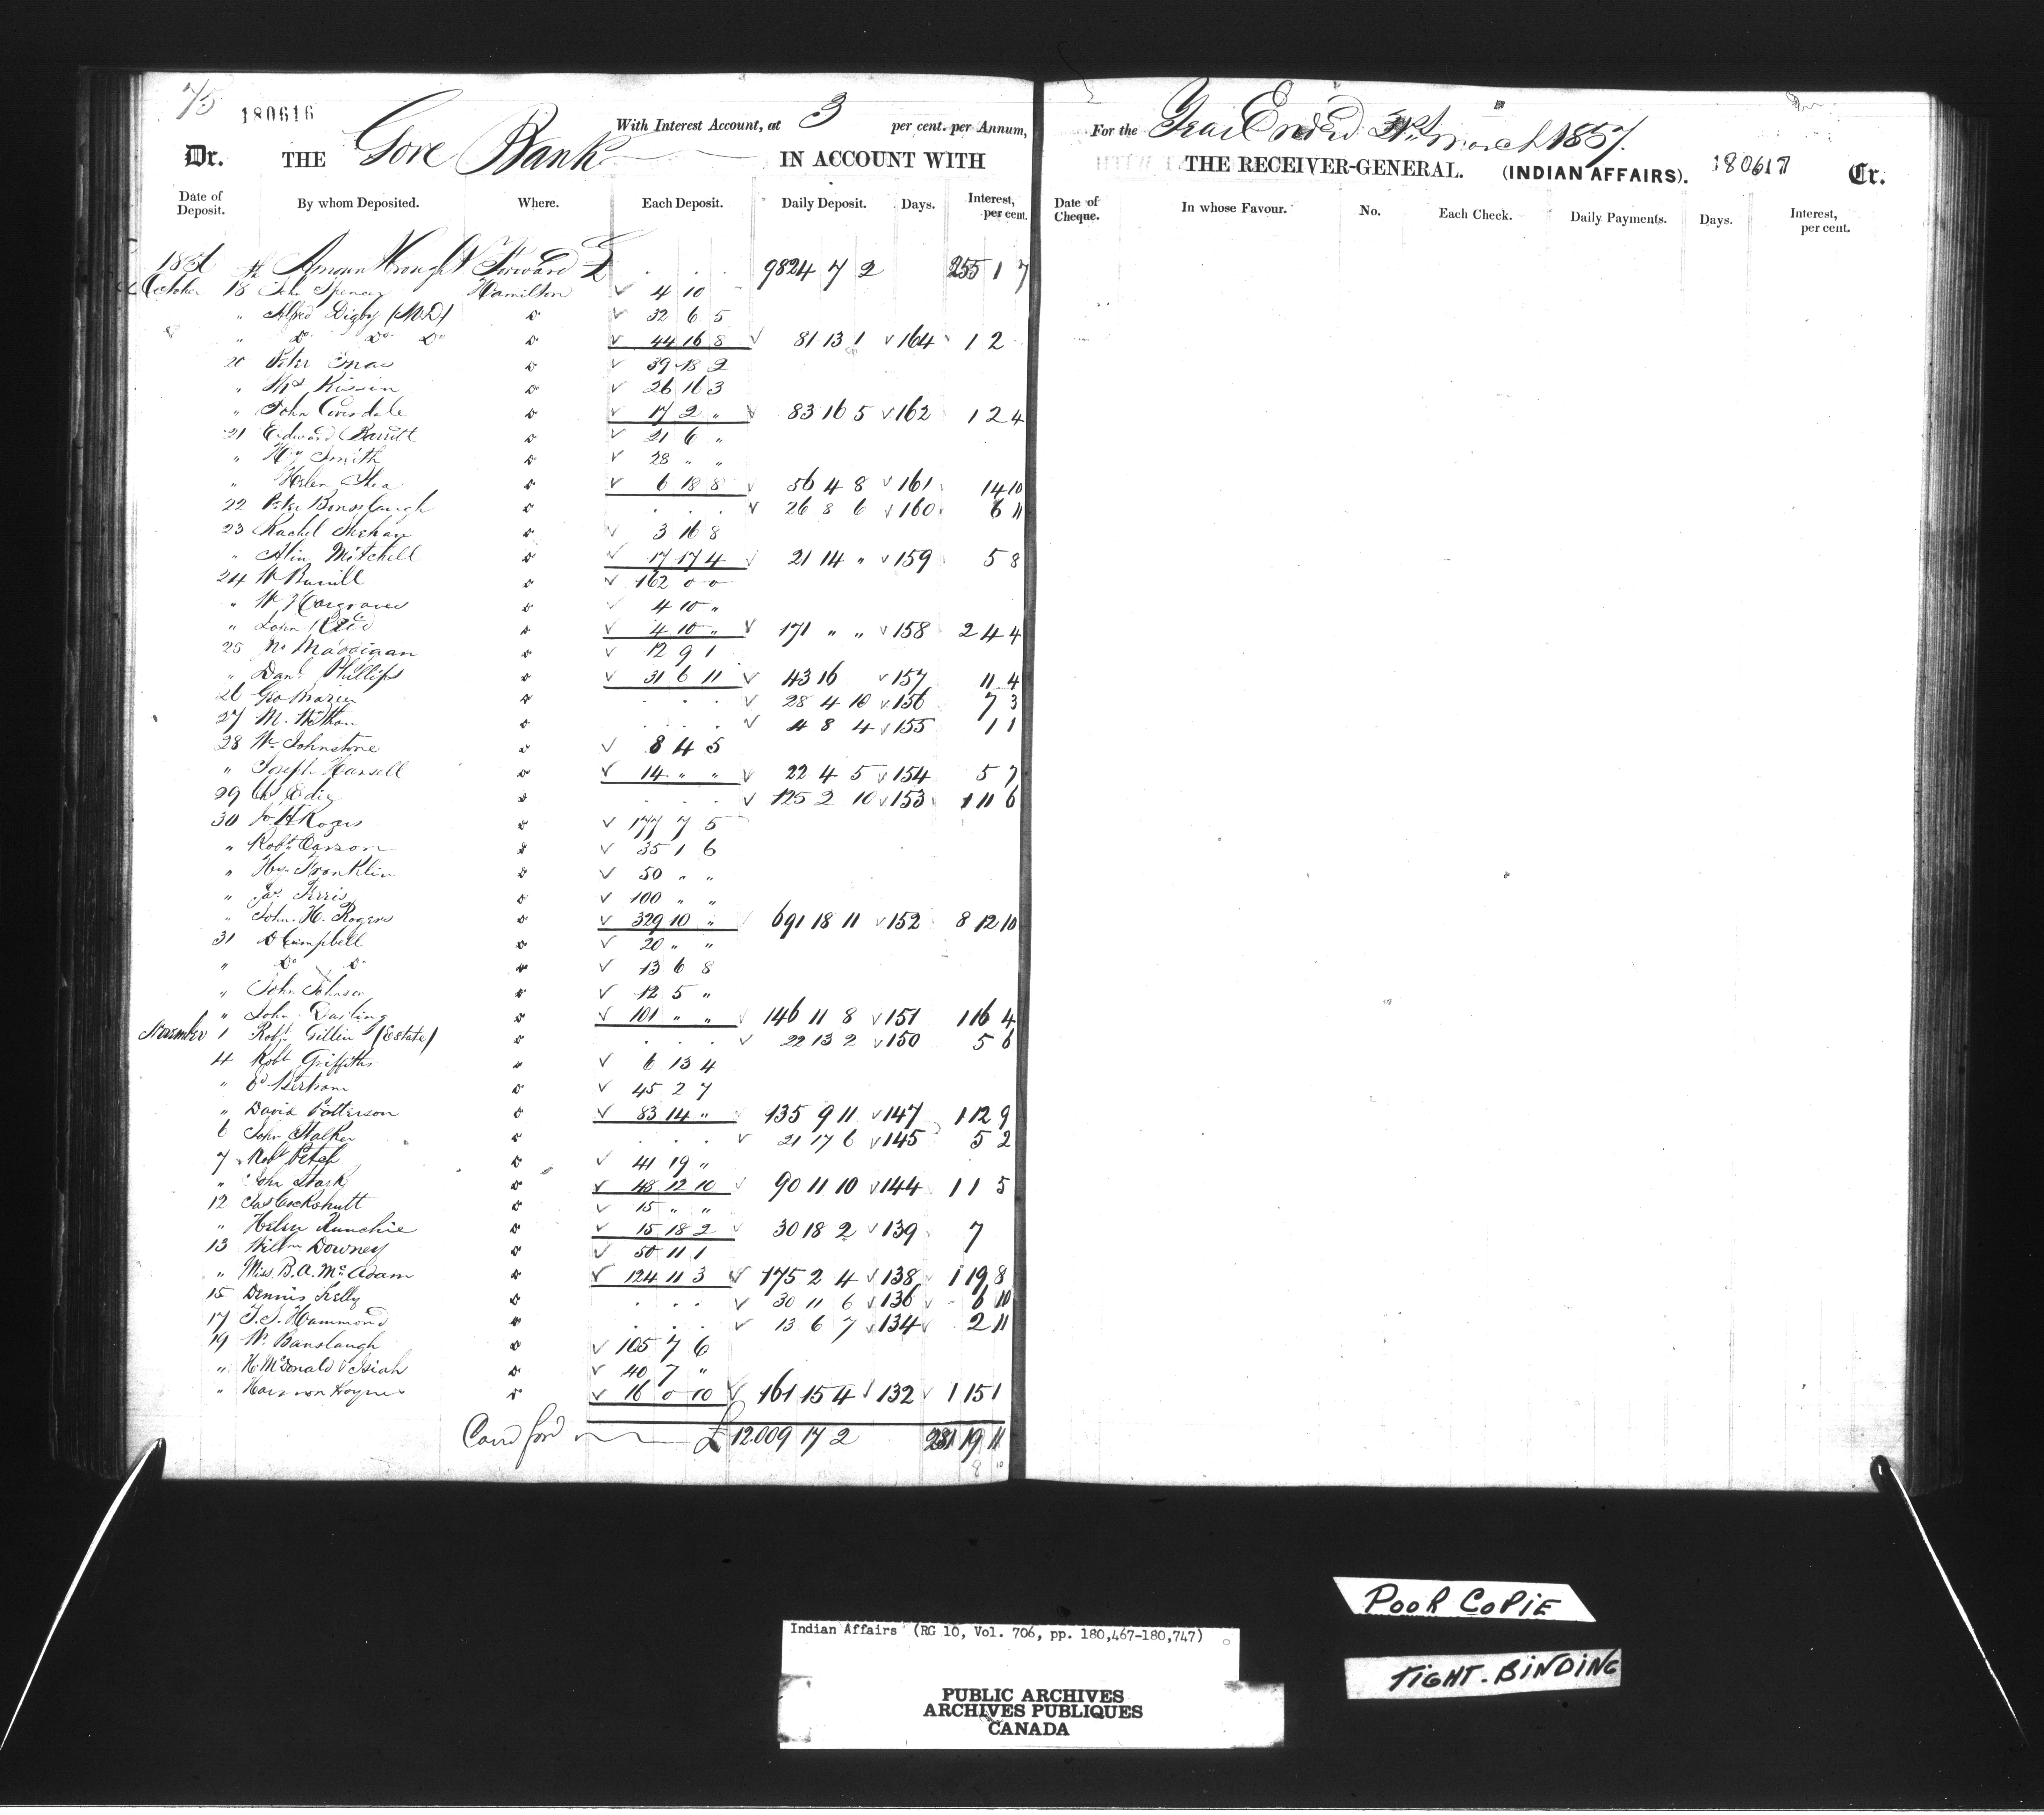 75
180616
With Interest Account, at 3 per cent. per Annum,
Dr. THE Gore Bank IN ACCOUNT WITH
Date of Deposit. By whom Deposited. Where. Each Deposit. Daily Deposit. Days. Interest, per cent.
1856 Forward £ 9824 7 2 255 1 7
October 18 John Spencer Hamilton 4 10
" Alfred Digby (M.D) Do 32 6 5
" Do Do Do Do 44 16 8 81 13 1 164 1 2
20 Peter Do 39 18 2
" Do 26 16 3
" John Do 17 2 " 83 16 5 162 1 2 4
21 Edward Do 21 6 "
" Hy Smith Do 28 " "
" Helen Shea Do 6 18 8 56 4 8 161 14 10
22 Peter Bonslaugh Do 26 8 6 160 6 11
23 Rachel Do 3 16 8
" Mitchell Do 17 17 4 21 14 " 159 5 8
24 W Do 162 0 0
" W Hargraves Do 4 10 "
" John Reed Do 4 10 " 171 " " 158 2 4 4
25 Madigan Do 12 9 1
" Danl Phillips Do 31 6 11 43 16 157 11 4
26 Geo Do 28 4 10 156 7 3
27 M. Do 4 8 4 155 1 1
28 Wm Johnstone Do 8 4 5
" Joseph Hansell Do 14 " " 22 4 5 154 5 7
29 Edie Do 125 2 10 153 1 11 6
30 H Rogers Do 177 7 5
" Robt Carson Do 35 1 6
" Hy Franklin Do 50 " "
" Jas Ferris Do 100 " "
" John H. Rogers Do 329 10 " 691 18 11 152 8 12 10
31 D Campbell Do 20 " "
" Do Do Do 13 6 8
" John Johnson Do 12 5 "
" John Darling Do 101 " " 146 11 8 151 1 16 4
November 1 Robt Gillin (Estate) Do 22 13 2 150 5 6
4 Robt Griffiths Do 6 13 4
" Ed Bertram Do 45 2 7
" David Patterson Do 83 14 " 135 9 11 147 1 12 9
6 John Stalker Do 21 17 6 145 5 2
7 Robt Petch Do 41 19 "
" John Stark Do 48 12 10 90 11 10 144 1 1 5
12 Jas Cockshutt Do 15 " "
" Helen Runchie Do 15 18 2 30 18 2 139 7
13 Willm Downey Do 50 11 1
" Miss B. A. McAdam Do 124 11 3 175 2 4 138 1 19 8
15 Dennis Kelly Do 30 11 6 136 6 10
17 T. S. Hammond Do 13 6 7 134 2 11
19 W. Banslaugh Do 105 7 6
" H. McDonald Do 40 7 "
" Do 16 0 10 161 15 4 132 1 15 1
Card ford £ 12.009 17 2 281 19 11
8 10
For the Year Ended 31st March 1857.
THE RECEIVER-GENERAL. (INDIAN AFFAIRS). 180617 Cr.
Date of Cheque. In whose Favour. No. Each Check. Daily Payments. Days. Interest, per cent.
POOR COPIE
Indian Affairs (RG 10, Vol. 706, pp. 180,467-180,747)
TIGHT. BINDING
PUBLIC ARCHIVES
ARCHIVES PUBLIQUES
CANADA